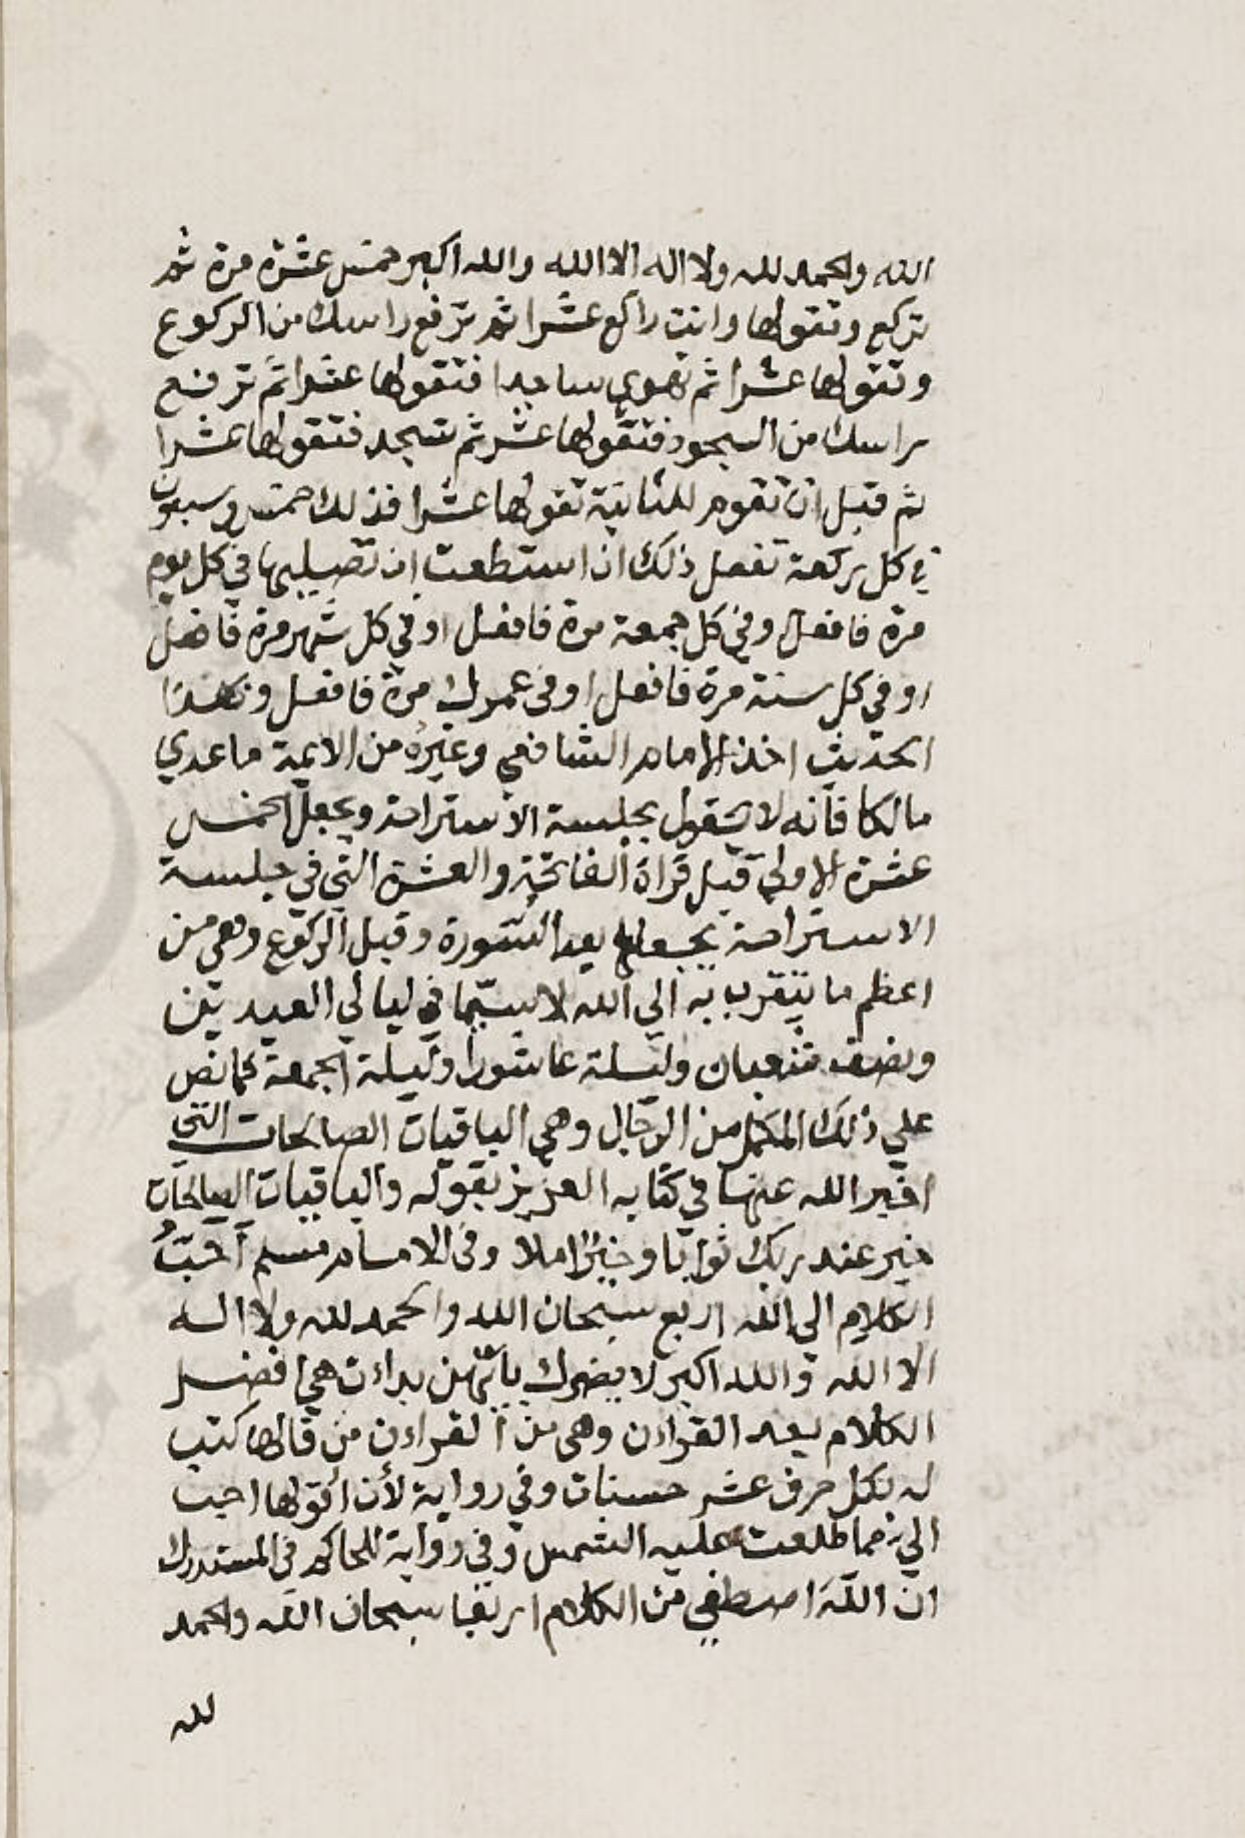 الله والحمد لله ولا اله الا الله والله اكبر خمس عشرة مرة ثم
تركع وتقولها وانت راكع عشرا ثم ترفع راسك من الركوع
وتقولها عشرا ثم تهوي ساجدا فتقولها عشرا ثم ترفع
راسك من السجود فتقولها عشر ثم تسجد فتقولها عشرا
ثم قبل ان تقوم للثانية تقولها عشرا فذلك خمس وسبعون
في كل ركعة تفعل ذلك ان استطعت ان تصليها في كل يوم
مرة فافعل وفي كل جمعة مرة فافعل او في كل شهر مرة فافعل
او في كل سنة مرة فافعل او في عمرك مرة فافعل وبهذا
الحديث اخذ الامام الشافعي وغيره من الايمة ما عدي
مالكا فانه لا يقول بجلسة الاستراحة ويجعل الخمس
عشرة الاولي قبل قراة الفاتحة والعشرة التي في جلسة
الاستراحة يجعلها بعد السورة وقبل الركوع وهي من
اعظم ما يتقرب به الي الله لا سيما في ليالي العيدين
ونصف شعبان وليلة عاشورا وليلة الجمعة كما نص
علي ذلك المكمل من الرجال وهي الباقيات الصالحات التي
اخبر الله عنها في كتابه العزيز بقوله والباقيات الصالحات
خير عند ربك ثوابا وخير املا وفي الامام مسلم احب
الكلام الي الله اربع سبحان الله والحمد لله ولا اله
الا الله والله اكبر لا يضرك بايهن بداءت هي افضل
الكلام بعد القراءن وهي من القراءن من قالها كتب
له بكل حرف عشر حسنات وفي رواية لأن اقولها احب
الي مما طلعت عليه الشمس وفي رواية للحاكم في المستدرك
ان الله اصطفي من الكلام اربعا سبحان الله والحمد
لله